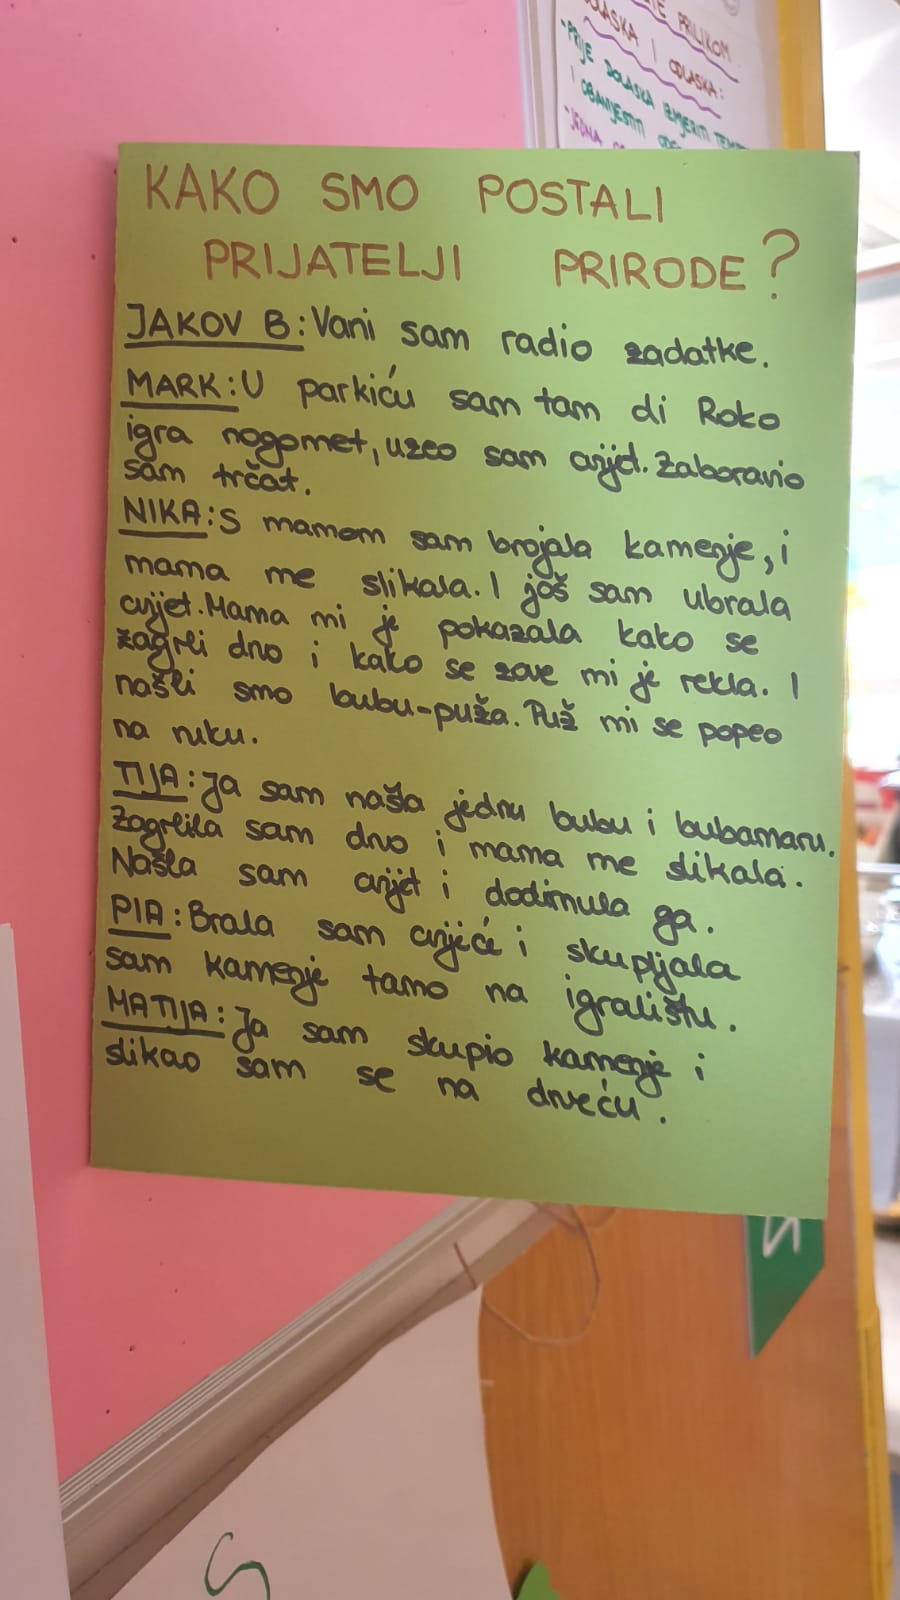 PRILIKOM
DOLASKA I ODLASKA:
-PRIJE DOLASKA IZMJERITI
I OBAVIJESTITI
-JEDNA
KAKO SMO POSTALI
PRIJATELJI PRIRODE?
JAKOV B: Vani sam radio zadatke.
MARK: U parkiću sam tam di Roko
igra nogomet, uzeo sam cvijet. Zaboravio
sam trčat.
NIKA: S mamom sam brojala kamenje, i
mama me slikala. I još sam ubrala
cvijet. Mama mi je pokazala kako se
zagrli drvo i kako se zove mi je rekla. I
našli smo bubu-puža. Puž mi se popeo
na ruku.
TIJA: Ja sam našla jednu bubu i bubamaru.
Zagrlila sam drvo i mama me slikala.
Našla sam cvijet i dodirnula ga.
PIA: Brala sam cvijeće i skupljala
sam kamenje tamo na igralištu.
MATIJA: Ja sam skupio kamenje i
slikao sam se na drveću.
S